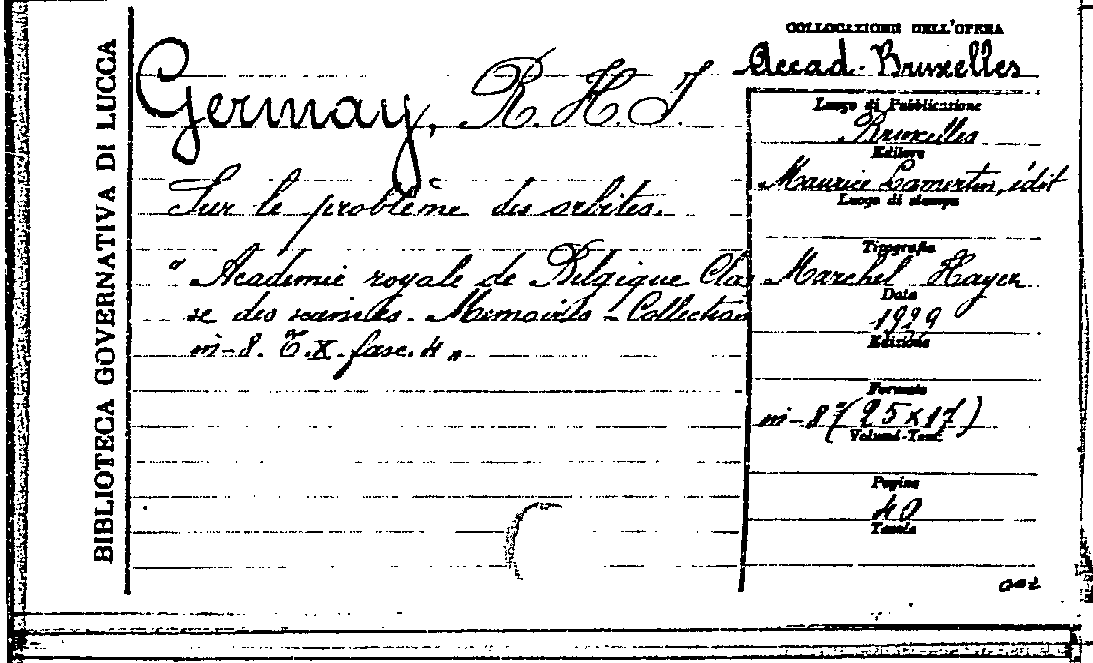 BIBLIOTECA GOVERNATIVA DI LUCCA
Germay, R. H. J.
Sur le problème des orbites.
" Academie royale de Belgique Clas
se des sciences. Memoires - Collection
in-8. T. X. fasc. 4 "
COLLOCAZIONE DELL'OPERA
Accad. Bruxelles
Luogo di Pubblicazione
Bruxelles
Editore
Maurice Lamertin, édit
Luogo di stampa
Tipografia
Marchel Hayer
Data
1929
Edizione
Formato
in-8° (25x17)
Volumi-Tomi
Pagine
40
Tavole